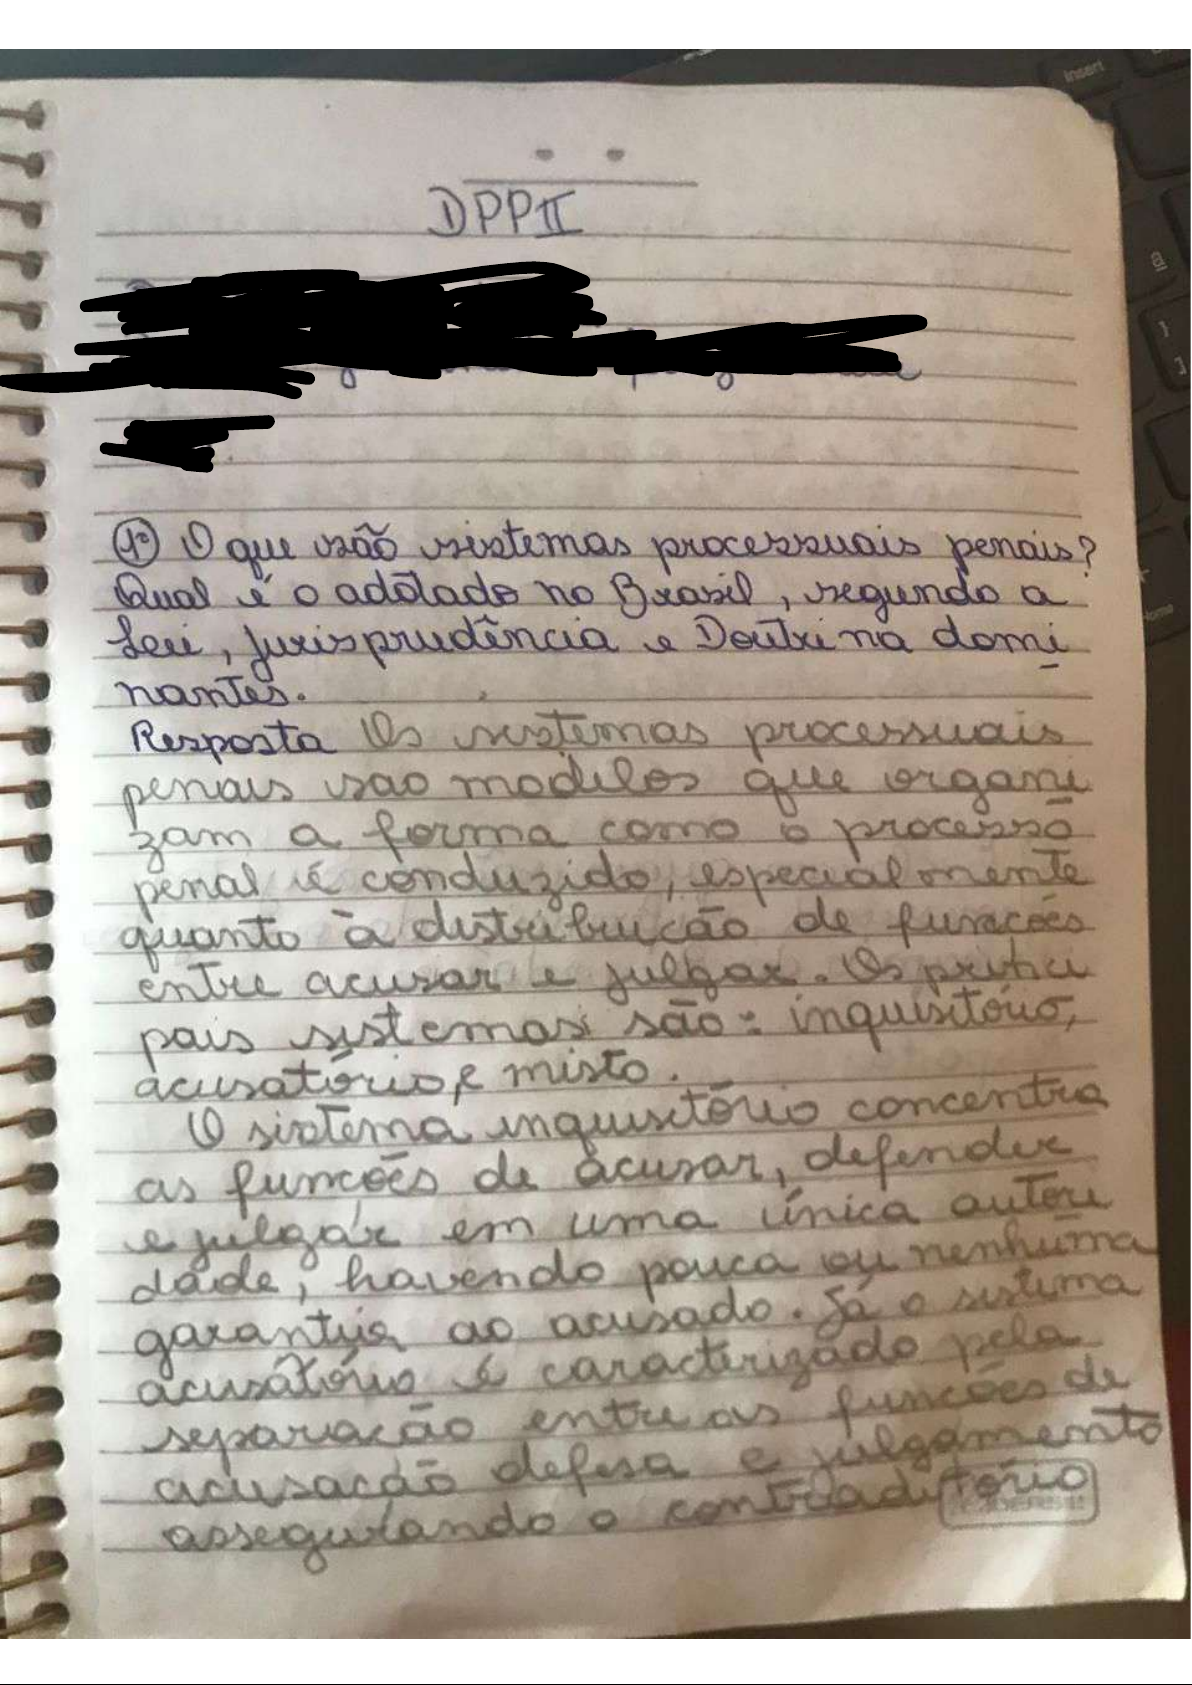 DPPII
1º O que são sistemas processuais penais?
Qual é o adotado no Brasil, segundo a
Lei, jurisprudência e Doutrina domi
nantes.
Resposta Os sistemas processuais
penais sao modelos que organi
zam a forma como o processo
penal é conduzido, especialmente
quanto à distribuição de funções
entre acusar e julgar. Os princi
pais sistemas são: inquisitório,
acusatório e misto.
O sistema inquisitório concentra
as funções de acusar, defender
e julgar em uma única autori
dade, havendo pouca ou nenhuma
garantia ao acusado. Já o sistema
acusatório é caracterizado pela
separação entre as funções de
acusação defesa e julgamento
assegurando o contraditório
Insert
Home